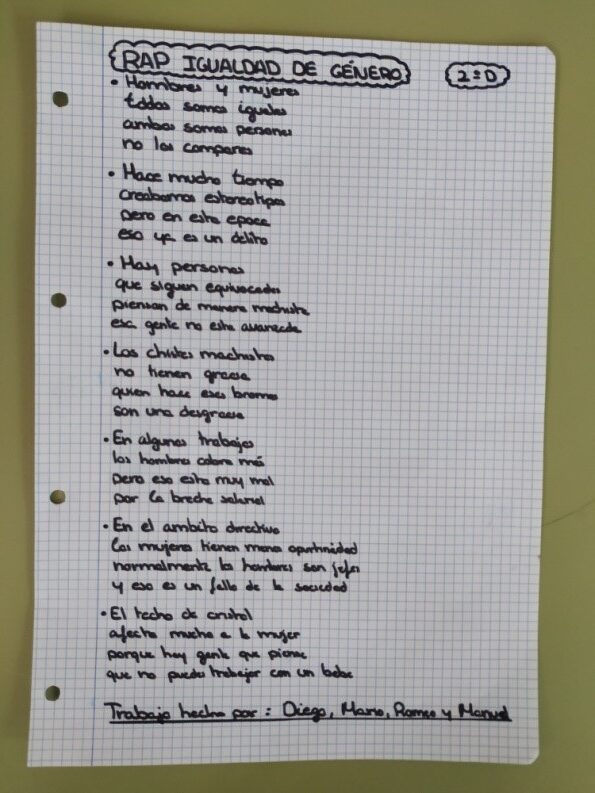 RAP IGUALDAD DE GÉNERO 2ºD
• Hombres y mujeres
todos somos iguales
ambos somos personas
no los compares
• Hace mucho tiempo
creabamos estereotipos
pero en esta epoca
eso ya es un delito
• Hay personas
que siguen equivocadas
piensan de manera machista
esa gente no esta avanzada
• Los chistes machistas
no tienen gracia
quien hace esas bromas
son una desgracia
• En algunos trabajos
los hombres cobran más
pero eso esta muy mal
por la brecha salarial
• En el ambito directivo
las mujeres tienen menos oportunidad
normalmente los hombres son jefes
y eso es un fallo de la sociedad
• El techo de cristal
afecta mucho a la mujer
porque hay gente que piensa
que no puedes trabajar con un bebe
Trabajo hecho por: Diego, Mario, Romeo y Manuel